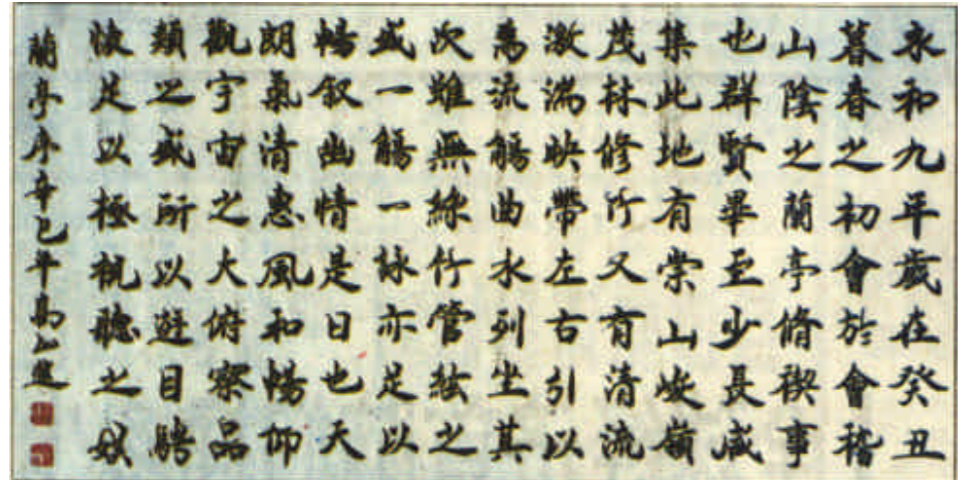 永和九年歲在癸丑
暮春之初會於會稽
山陰之蘭亭脩禊事
也群賢畢至少長咸
集此地有崇山峻嶺
茂林修竹又有清流
激湍映帶左右引以
為流觴曲水列坐其
次雖無絲竹管絃之
盛一觴一詠亦足以
暢叙幽情是日也天
朗氣清惠風和暢仰
觀宇宙之大俯察品
類之盛所以遊目騁
懷足以極視聽之娱
蘭亭序辛巳年